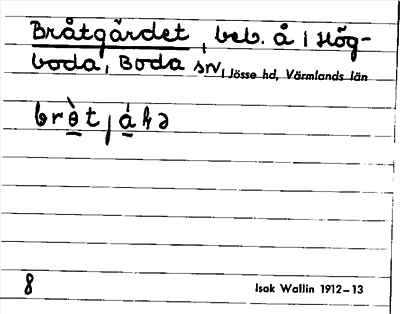 Bråtgärdet, beb. å i Hög-
boda, Boda sn, Jösse hd, Värmlands län
8
Isak Wallin 1912–13